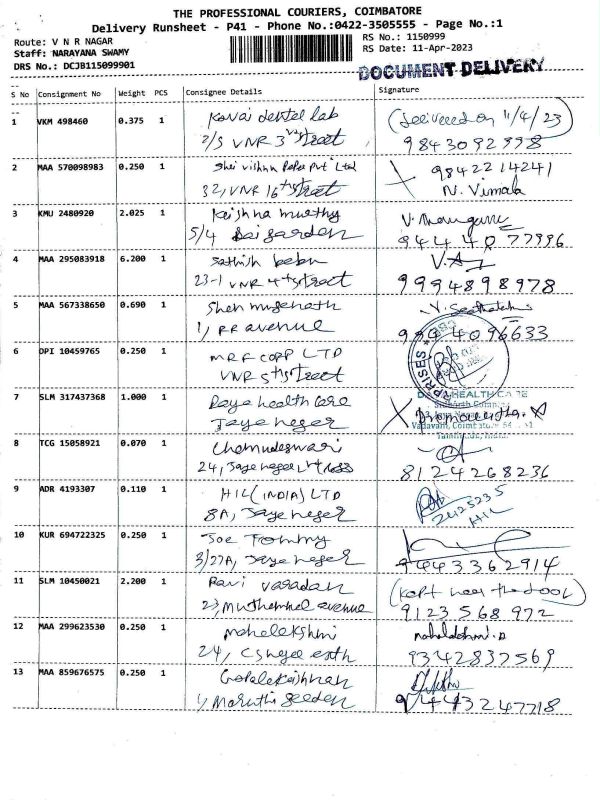 THE PROFESSIONAL COURIERS, COIMBATORE
Delivery Runsheet - P41 - Phone No.:0422-3505555 - Page No.:1
Route: V N R NAGAR
RS No.: 1150999
Staff: NARAYANA SWAMY
RS Date: 11-Apr-2023
DRS No.: DCJB115099901
DOCUMENT DELIVERY
S No Consignment No Weight PCS Consignee Details Signature
1 VKM 498460 0.375 1 Kovai dental lab (delivered on 11/4/23)
2/5 VNR 3rd street 9843092998
2 MAA 570098983 0.250 1 Shri vishnu Paper Pvt Ltd 9842214241
32, VNR 16th street N. Vimala
3 KMU 2480920 2.025 1 Krishna murthy
5/4 Sai garden 94440 77996
4 MAA 295083918 6.200 1 Sathish babu
23-1 VNR 4th street 9994898978
5 MAA 567338650 0.690 1
1, RR avenue 9994096633
6 DPI 10459765 0.250 1 MRF CORP LTD
VNR 5th street
7 SLM 317437368 1.000 1 Daya health care HEALTH CARE
Jaya neger
8 TCG 15058921 0.070 1 Chamudeswari
24, Jaya neger 8124268236
9 ADR 4193307 0.110 1 HIL (INDIA) LTD 2425235
8A, Jaye neger HIL
10 KUR 694722325 0.250 1 Joe Tommy
3/27A, Jaye neger 9443362914
11 SLM 10450021 2.200 1 Ravi varadan (kept near the door)
23, avenue 9123568972
12 MAA 299623530 0.250 1 mahalekshmi mahalakshmi.
24, 9342837569
13 MAA 859676575 0.250 1 Gopalakrishnan
1, Maruthi geeden 9443247718